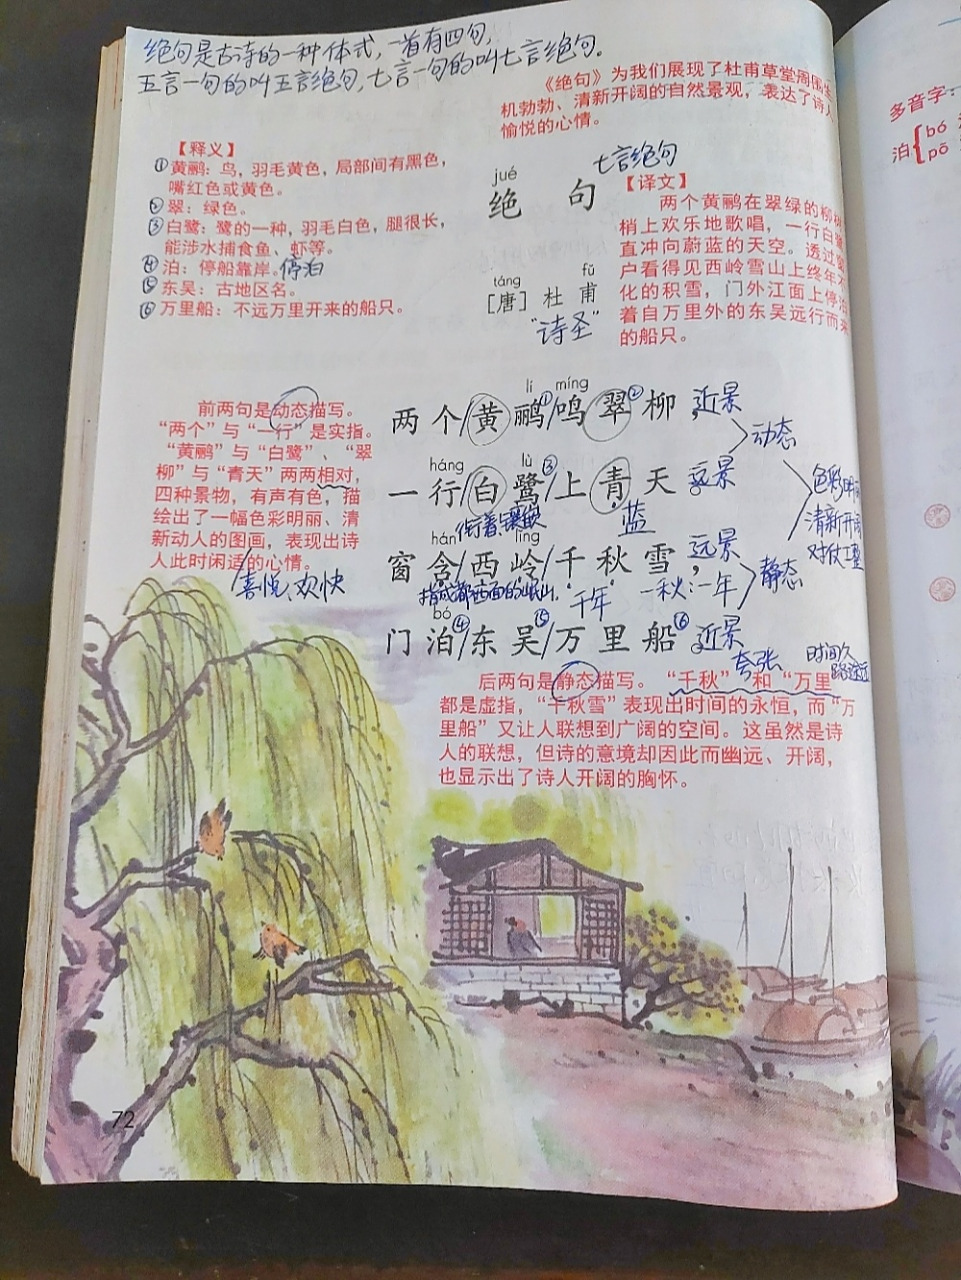 绝句是古诗的一种体式,一首有四句,
五言一句的叫五言绝句,七言一句的叫七言绝句.
《绝句》为我们展现了杜甫草堂周围
机勃勃、清新开阔的自然景观,表达了诗人
愉悦的心情。
【释义】
①黄鹂:鸟,羽毛黄色,局部间有黑色,
嘴红色或黄色。
②翠:绿色。
③白鹭:鹭的一种,羽毛白色,腿很长,
能涉水捕食鱼、虾等。
④泊:停船靠岸。停泊
⑤东吴:古地区名。
⑥万里船:不远万里开来的船只。
七言绝句
jué
绝 句
táng fǔ
[唐] 杜 甫
“诗圣”
【译文】
两个黄鹂在翠绿的柳树
梢上欢乐地歌唱,一行白鹭
直冲向蔚蓝的天空。透过窗
户看得见西岭雪山上终年不
化的积雪,门外江面上停泊
着自万里外的东吴远行而来
的船只。
前两句是动态描写。
“两个”与“一行”是实指。
“黄鹂”与“白鹭”、“翠
柳”与“青天”两两相对,
四种景物,有声有色,描
绘出了一幅色彩明丽、清
新动人的图画,表现出诗
人此时闲适的心情。
喜悦、欢快
lí míng
两个/黄鹂①/鸣翠②柳,近景
动态
háng lù
一行/白鹭③/上青天 远景
蓝
色彩明丽
清新开阔
对仗工整
hán lǐng
窗含/西岭/千秋雪,远景
指成都西面的岷山. 千年 一秋:一年
静态
bó
门泊④/东吴⑤/万里船⑥ 近景
夸张
时间久
路途远
后两句是静态描写。“千秋”和“万里
都是虚指,“千秋雪”表现出时间的永恒,而“万
里船”又让人联想到广阔的空间。这虽然是诗
人的联想,但诗的意境却因此而幽远、开阔,
也显示出了诗人开阔的胸怀。
72
多音字:
泊{bó
pō